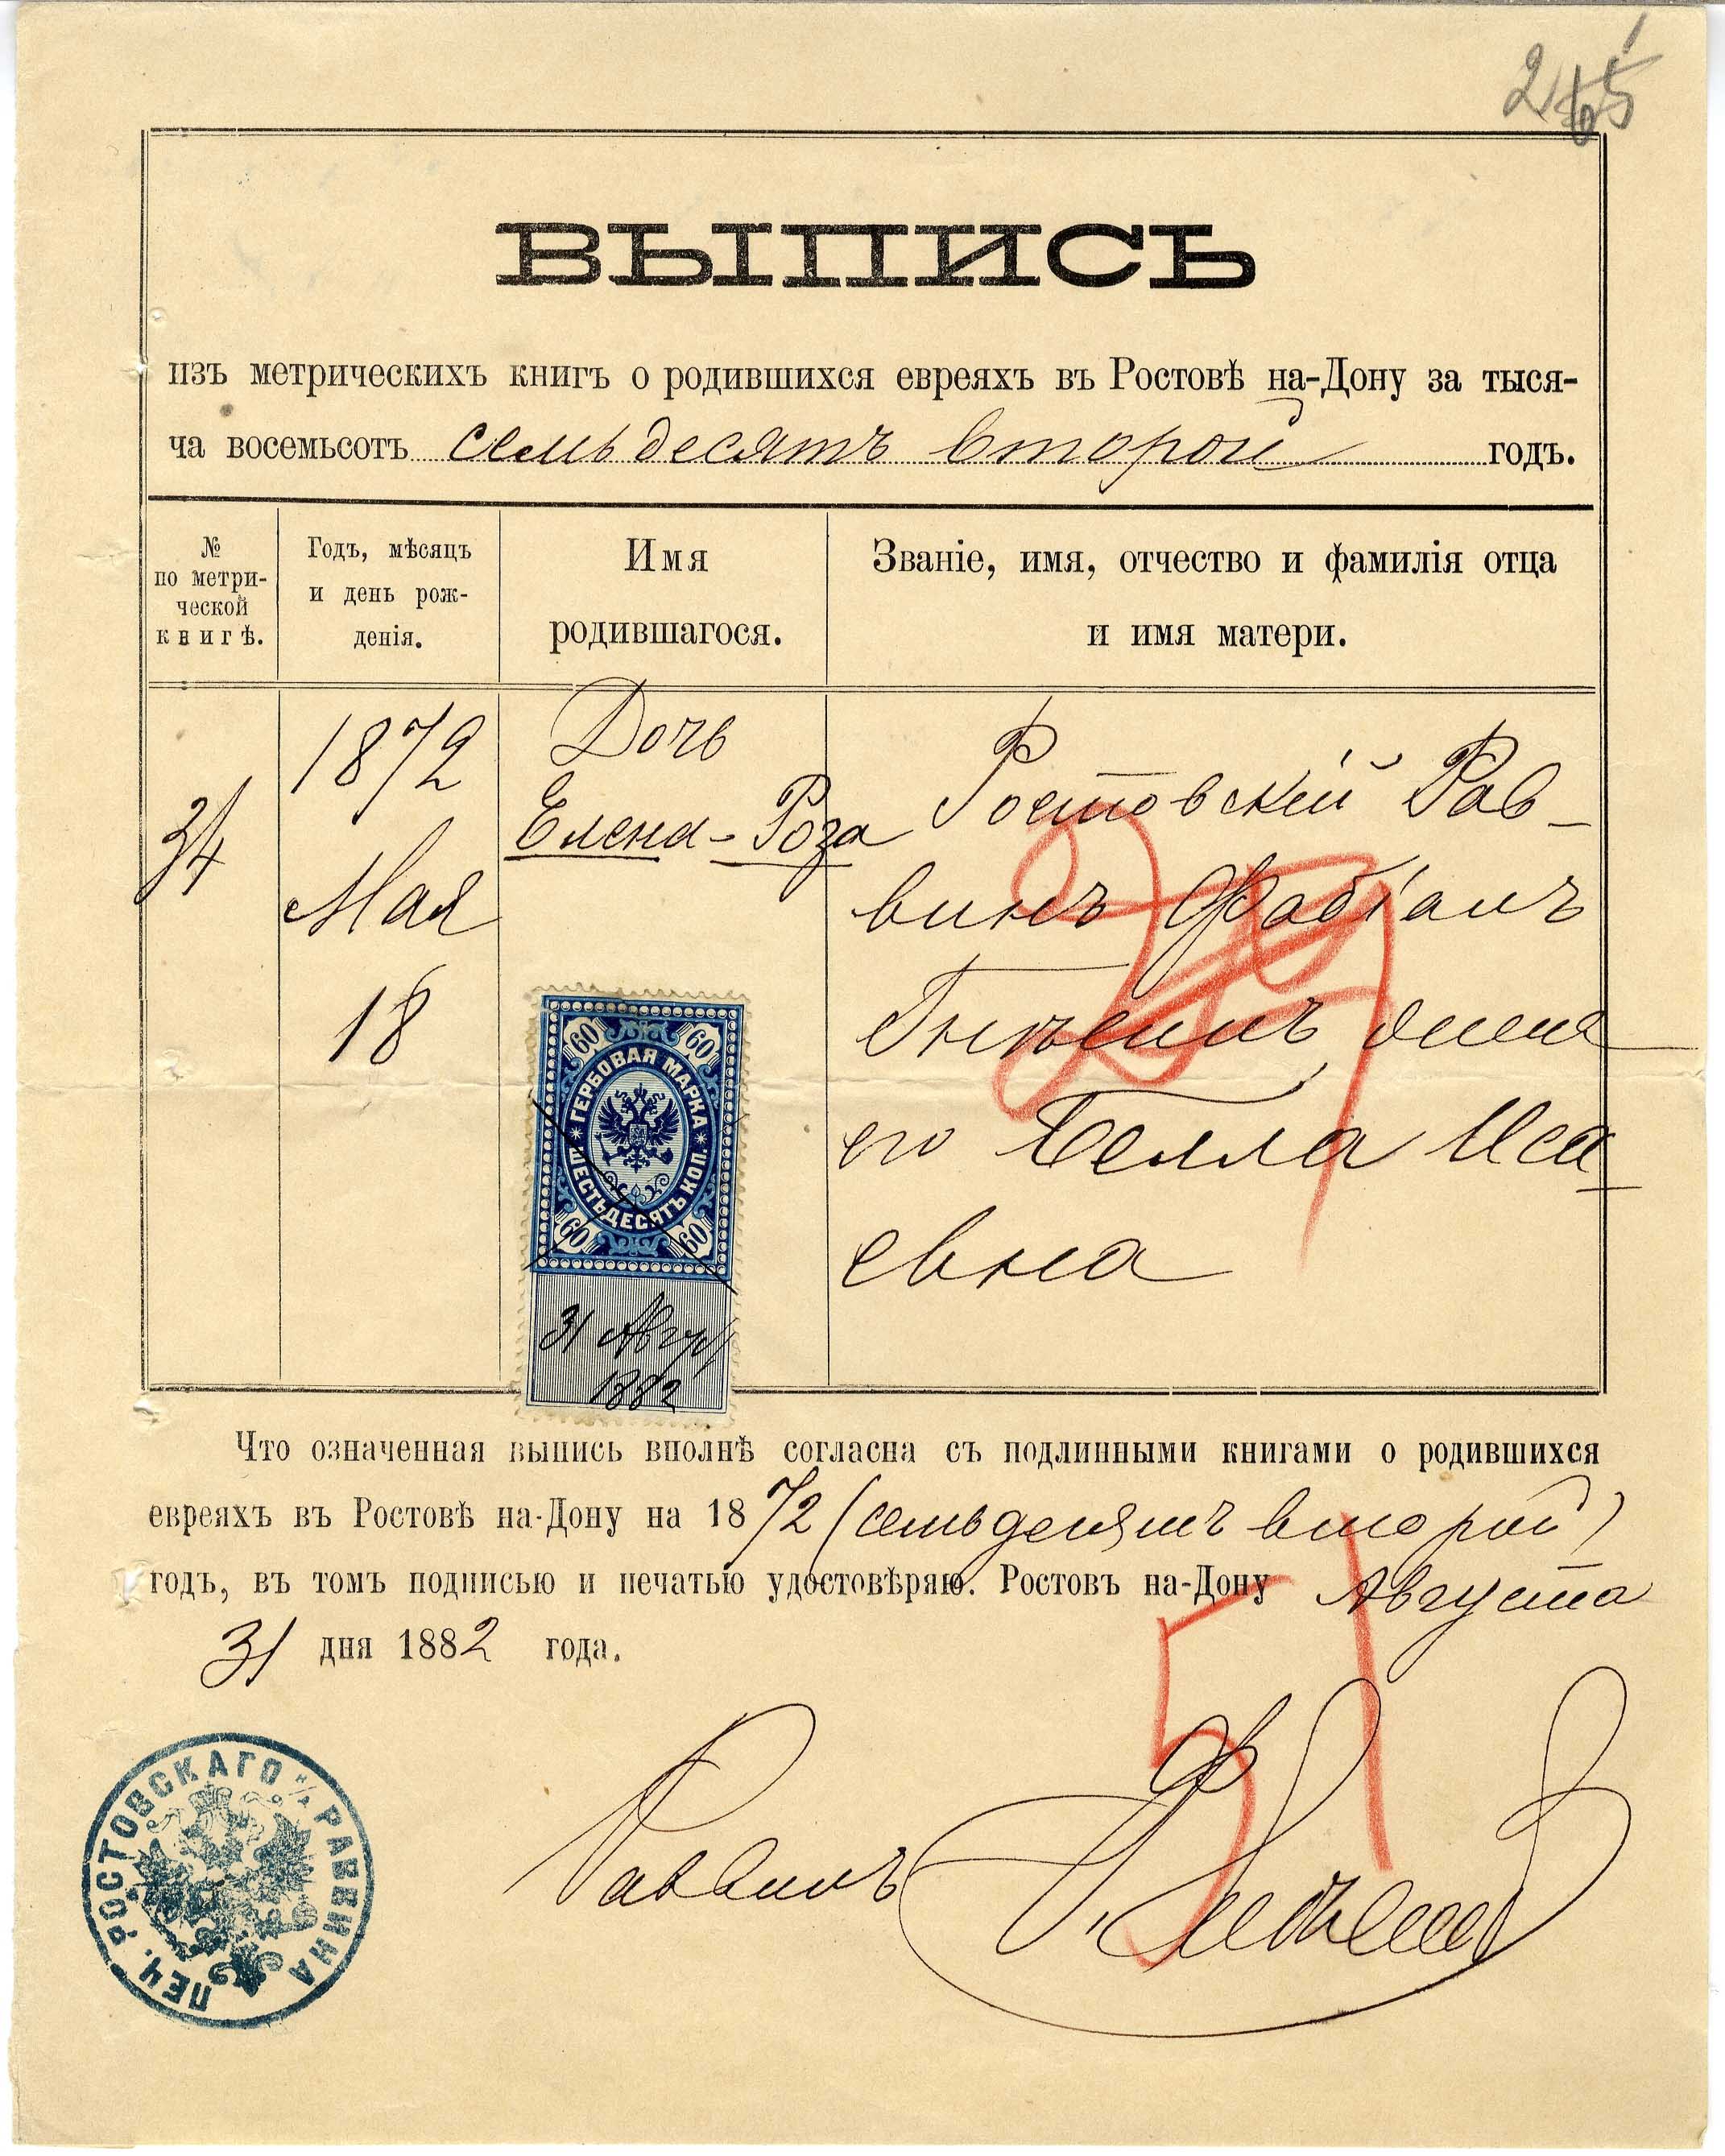 ВЫПИСЬ
изъ метрическихъ книгъ о родившихся евреяхъ въ Ростовѣ на-Дону за тыся-
ча восемьсотъ семьдесятъ второй годъ.
№
по метри-
ческой
книгѣ.
Годъ, мѣсяцъ
и день рож-
денія.
Имя
родившагося.
Званіе, имя, отчество и фамилія отца
и имя матери.
34
1872
Мая
18
Дочь
Елена-Роза
Ростовскій Рав-
винъ Фабіанъ
Гнѣсинъ жена
его Белла Иса
евна
60 60
ГЕРБОВАЯ МАРКА
ШЕСТЬДЕСЯТЪ КОП.
60 60
31 Авгу
1882
Что означенная выпись вполнѣ согласна съ подлинными книгами о родившихся
евреяхъ въ Ростовѣ на-Дону на 1872 (семьдесятъ второй)
годъ, въ томъ подписью и печатью удостовѣряю. Ростовъ на-Дону Августа
31 дня 1882 года.
51
Раввинъ Ф. Гнѣсинъ
ПЕЧ. РОСТОВСКАГО Н/Д РАВВИНА